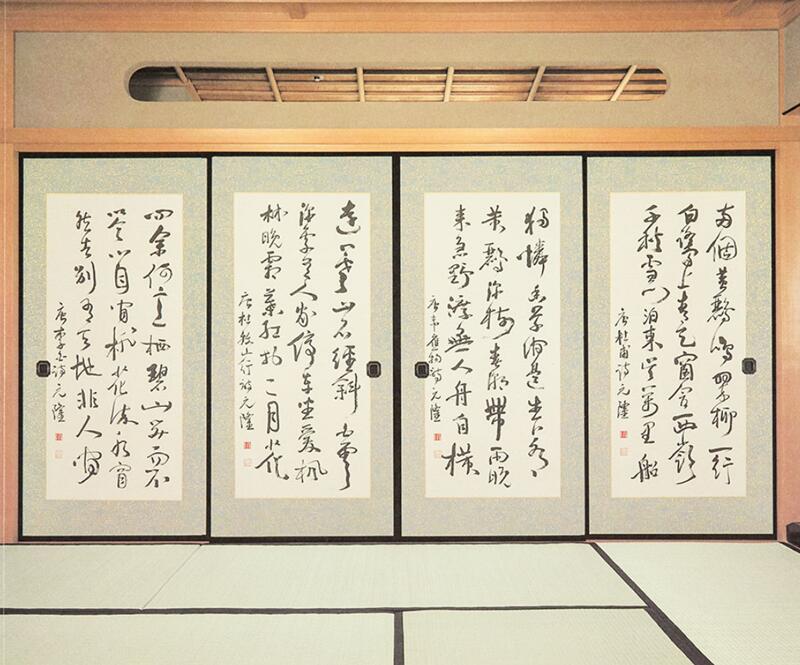 两個黄鸝鳴翠柳一行
白鷺上青天窗含西嶺
千秋雪门泊東吴萬里船
唐杜甫詩元
獨憐幽草澗邊生上有
黄鸝深樹春潮帶雨晚
来急野渡無人舟自横
唐韋應物詩元
遠上寒山石經斜白雲
深處有人家停車坐愛楓
林晚霜葉红於二月花
唐杜牧山行詩元
问余何意栖碧山笑而不
答心自閑桃花流水窅
然去别有天地非人間
唐李白詩元